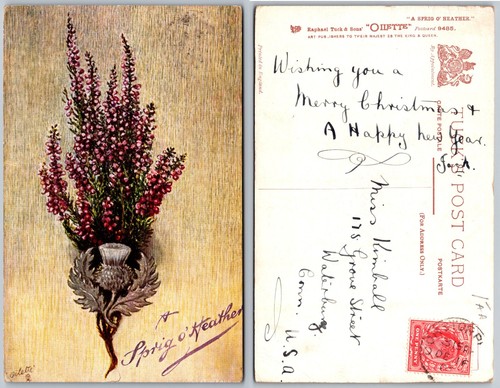 A
Sprig o' Heather
Oilette
"A SPRIG O' HEATHER."
Raphael Tuck & Sons' "OILETTE" Postcard 9485.
ART PUBLISHERS TO THEIR MAJESTIES THE KING & QUEEN.
By Appointment.
Wishing you a
Merry Christmas &
A Happy New Year.
CARTE POSTALE
TUCK'S POST CARD
(FOR ADDRESS ONLY.)
POSTKARTE
Miss Kimball
178 Grove Street
Waterbury
Conn. U.S.A.